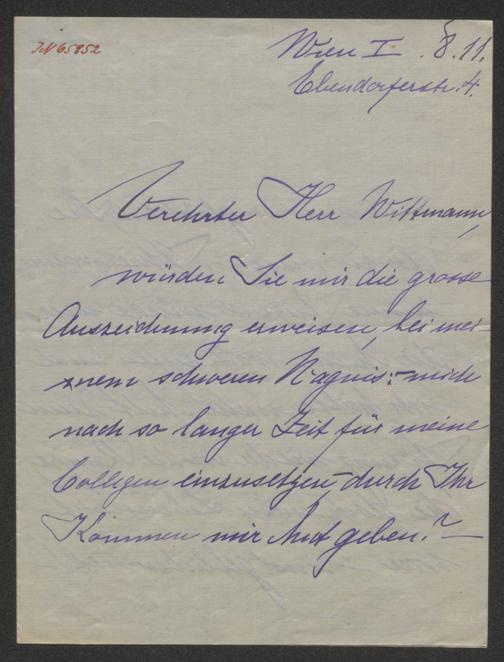 IN 65852
Wien I. 8.11.
Ebendorferstr. 4.
Verehrter Herr Wittmann,
würden Sie mir die grosse
Auszeichnung erweisen, bei mei-
nem schweren Wagnis: – mich
nach so langer Zeit für meine
Collegen einzusetzen, – durch Ihr
Kommen mir Mut geben? –